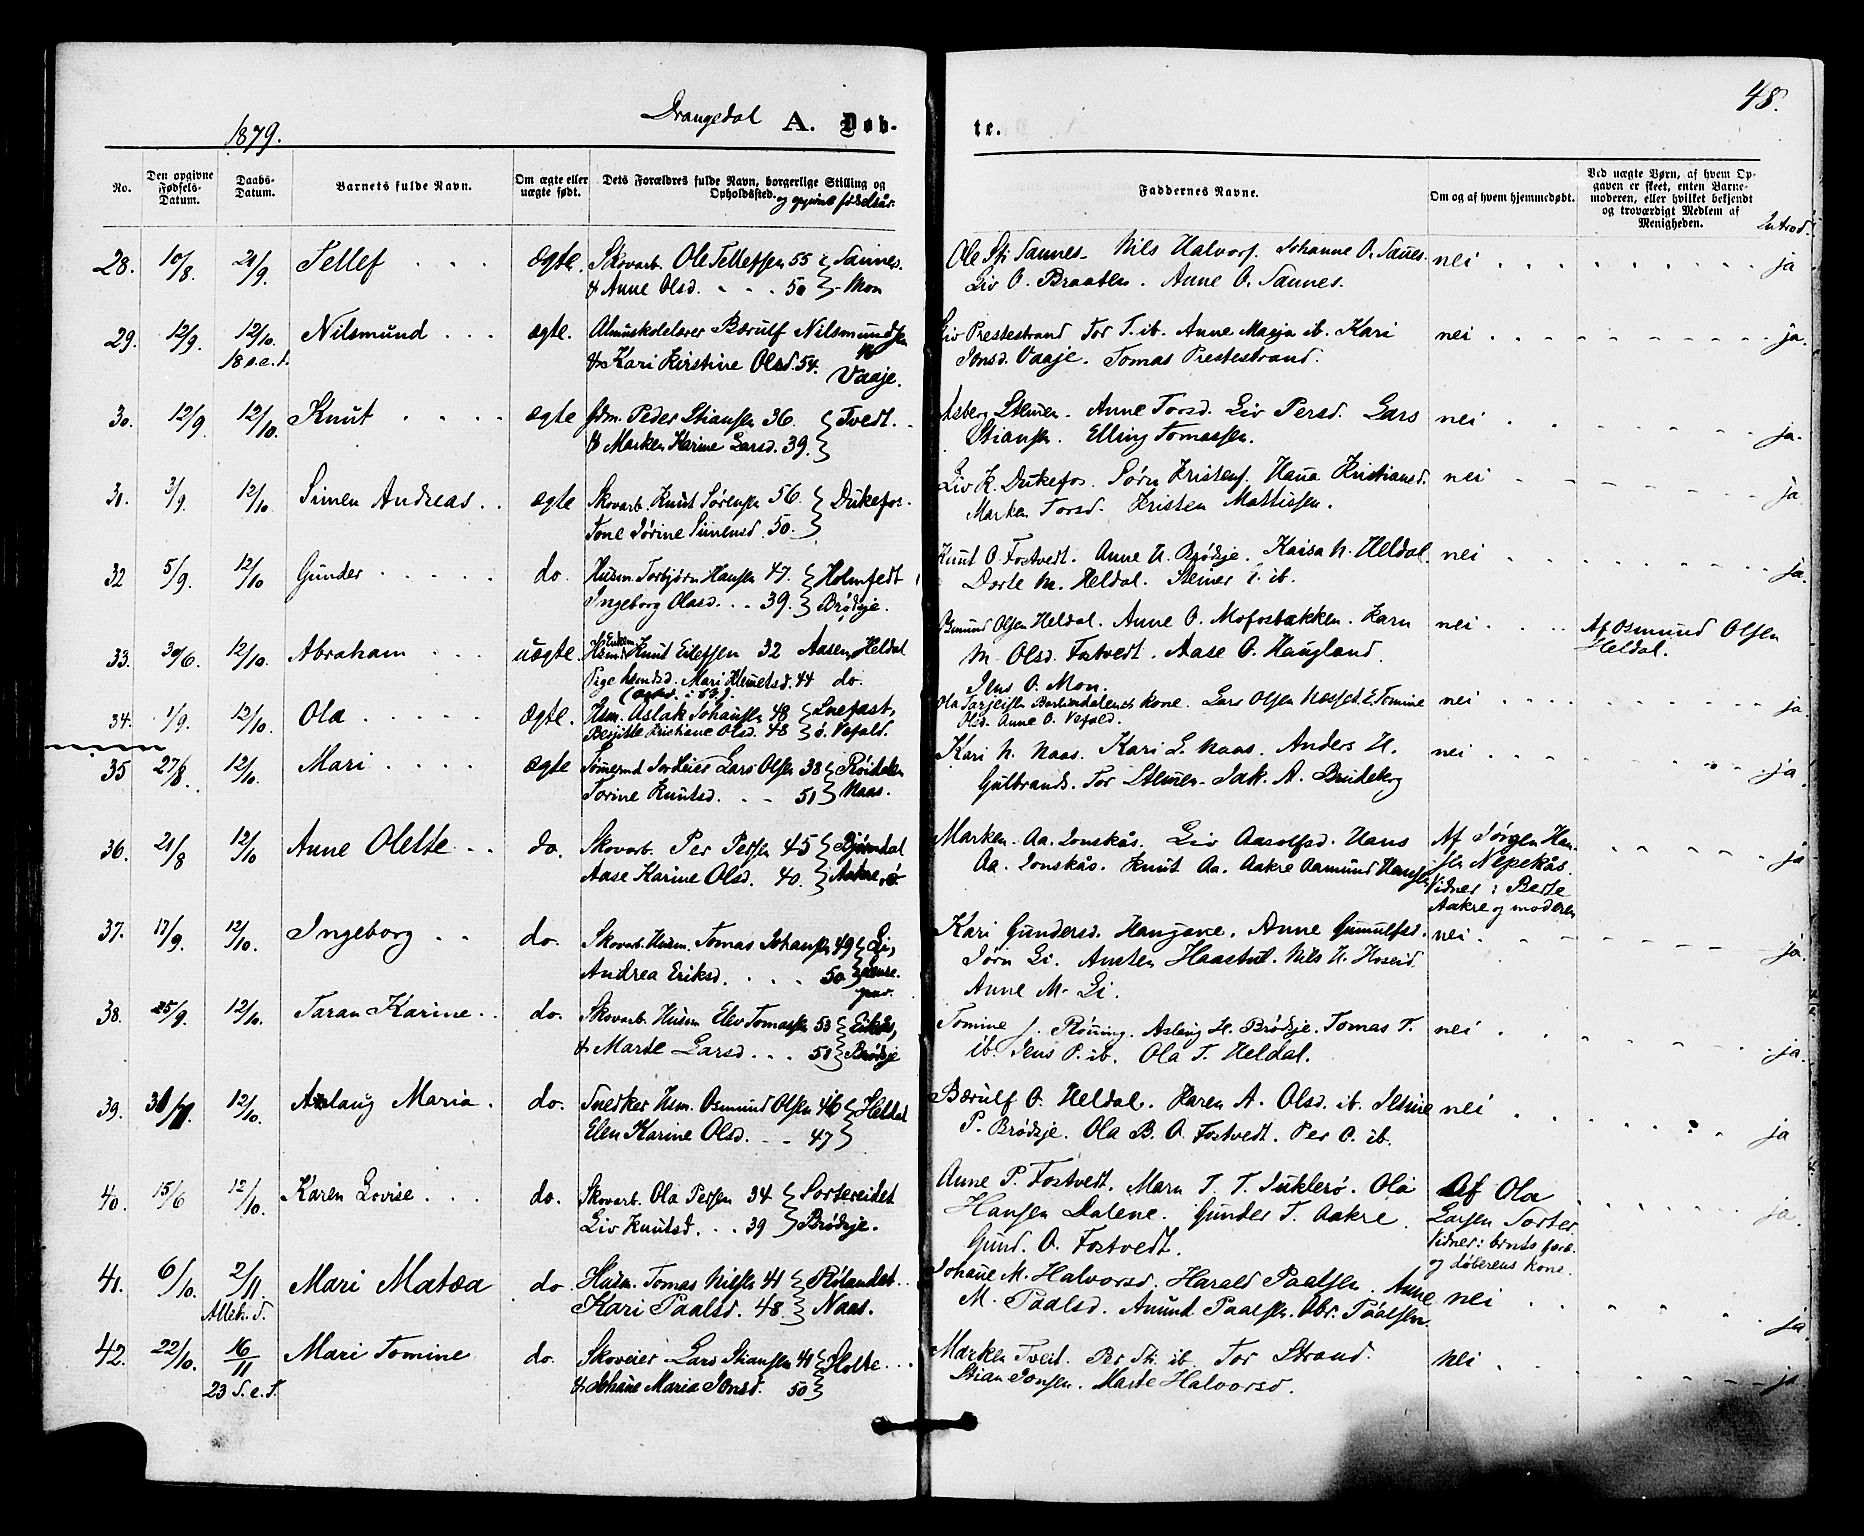 Drangedal A. Døb-
te.
48.
1879.
No.
Den opgivne Fødsels-Datum.
Daabs-Datum.
Barnets fulde Navn.
Om ægte eller uægte født.
Dets Forældres fulde Navn, borgerlige Stilling og Opholdssted.
og opgivne fødselsår.
Faddernes Navne.
Om og af hvem hjemmedøbt.
Ved uægte Børn, af hvem Op-
gaven er skeet, enten Barne-
moderen, eller hvilket bekjendt
og troværdigt Medlem af
Menigheden.
Introd.
28. 10/8. 21/9 Tellef ægte. Skovarb. Ole Tellefsen 55 Sannes. Ole Sannes. Nils Halvors. Johanne O. Sannes. nei ja
& Anne Olsd. 50 Mon Liv O. Braaten. Anne O. Sannes.
29. 12/9. 12/10. Nilsmund ægte. Almuskolelærer Bærulf Nilsmundsen Liv Prestestrand Tor T. ib. Anne Marja ib. Kari nei ja.
18 s.e.t. & Kari Kirstine Olsd. 54. Vaaje. Jonsd. Vaaje. Tomas Prestestrand.
30. 12/9 12/10. Knut ægte Peder Stiansen 36. Tvedt. Anne Torsd. Liv Persd. Lars nei ja.
& Marken Karine Larsd. 39. Stiansen. Elling Tomassen.
31. 3/9. 12/10. Simen Andreas ægte Skovarb. Knut Sørensen 56. Dukefos. Liv K. Dukefos. Sørn Kristens. Kristiansd. nei ja
Tone Jørine Simensd. 50. Marken Torsd. Kristen Mattissen.
32 5/9. 12/10 Gunder do. Husm. Torbjørn Hansen 47. Holmfedt Knut O. Fostvedt. Anne H. Brødsje. Kaisa N. Heldal. nei ja.
Ingeborg Olasd. 39. Brødsje. Dorte M. Heldal. Stener ib.
33. 30/6. 12/10. Abraham uægte. Knut Ellefsen 32 Aasen Heldal Osmund Olsen Heldal. Anne O. Mofosbakken. Karn nei Af Osmund Olsen
Pige Mari Klemetsd. 44 do. M. Olsd. Fostvedt. Aase O. Haugland. Heldal.
Jens O. Mon.
34. 1/9. 12/10. Ola ægte. Husm. Aslak Johansen 48 Snefast, Ola Kone. Lars Olsen Tomine nei ja.
Kristiane Olsd. 48 ö. Vefald. Olsd. Anne O. Vefald.
35 27/8. 12/10. Mari ægte Lars Olsen 38 Røidalen Kari N. Naas. Kari L. Naas. Anders H. nei ja.
Torine Knutsd. 51 Naas. Gulbrands. Tor Stenen. Jak. A. Brudeberg
36. 21/8 12/10 Anne Olette do. Skovarb. Per Persen 45 Bjørndal Marken. Aa. Jonskås. Liv Aasolfsd. Hans Af Jørgen Han- ja
Aase Karine Olsd. 40. Aakre, ö. Aa. Jonskås. Knut Aa. Aakre Aamund Hansen sen Nepekås.
Vidner: Berte
Aakre og moderen
37. 17/9. 12/10. Ingeborg do. Skovarb. Husm. Tomas Johansen 49 Li, Kari Gundersd. Haugane. Anne Gunulfsd. nei. ja.
Andrea Eriksd. 50 Jørn Li. Austen Haastul. Nils H. Hoseid.
Anne M. Li.
38. 25/9. 12/10. Taran Karine do. Skovarb. Husm Elev Tomassen 53 Eikås, Tomine J. Røning. Aslaug H. Brødsje. Tomas T. nei ja.
& Marte Larsd. 51 Brødsje ib. Jens P. ib. Ola T. Heldal.
39. 12/10. Aslaug Maria do. Snedker Husm. Osmund Olsen 46 Heldal Bærulf O. Heldal. Karen A. Olsd. ib. nei ja
Elen Karine Olsd. 47 P. Brødsje. Ola B. O. Fostvedt. Per O. ib.
40. 15/6 12/10. Karen Lovise do. Skovarb. Ola Persen 34 Sortereidet Anne P. Fostvedt. Marn T. T. Suklerø. Ola Af Ola ja.
Liv Knutsd. 39 Brødsje. Hansen Dalene. Gunder T. Aakre. Larsen Sorter.
Gund. O. Fostvedt. Vidner: brnts foræ.
og døberens kone.
41. 6/10. 2/11 Mari Matea do Husm. Tomas Nilsen 41 Rølandet Johane M. Halvorsd. Harald Paalsen. Anne nei ja.
Alleh. d. Kari Paalsd. 48 Naas. M. Paalsd. Amund Paalsen. Abr. Paalsen.
42. 22/10. 16/11 Mari Tomine do. Skoveier Lars Stiansen 41 Holte Marken Tveit. Per St. ib. Tor Strand. nei ja
23 S.e.T. & Johane Maria Jonsd. 50 Stian Jonsen. Marte Halvorsd.